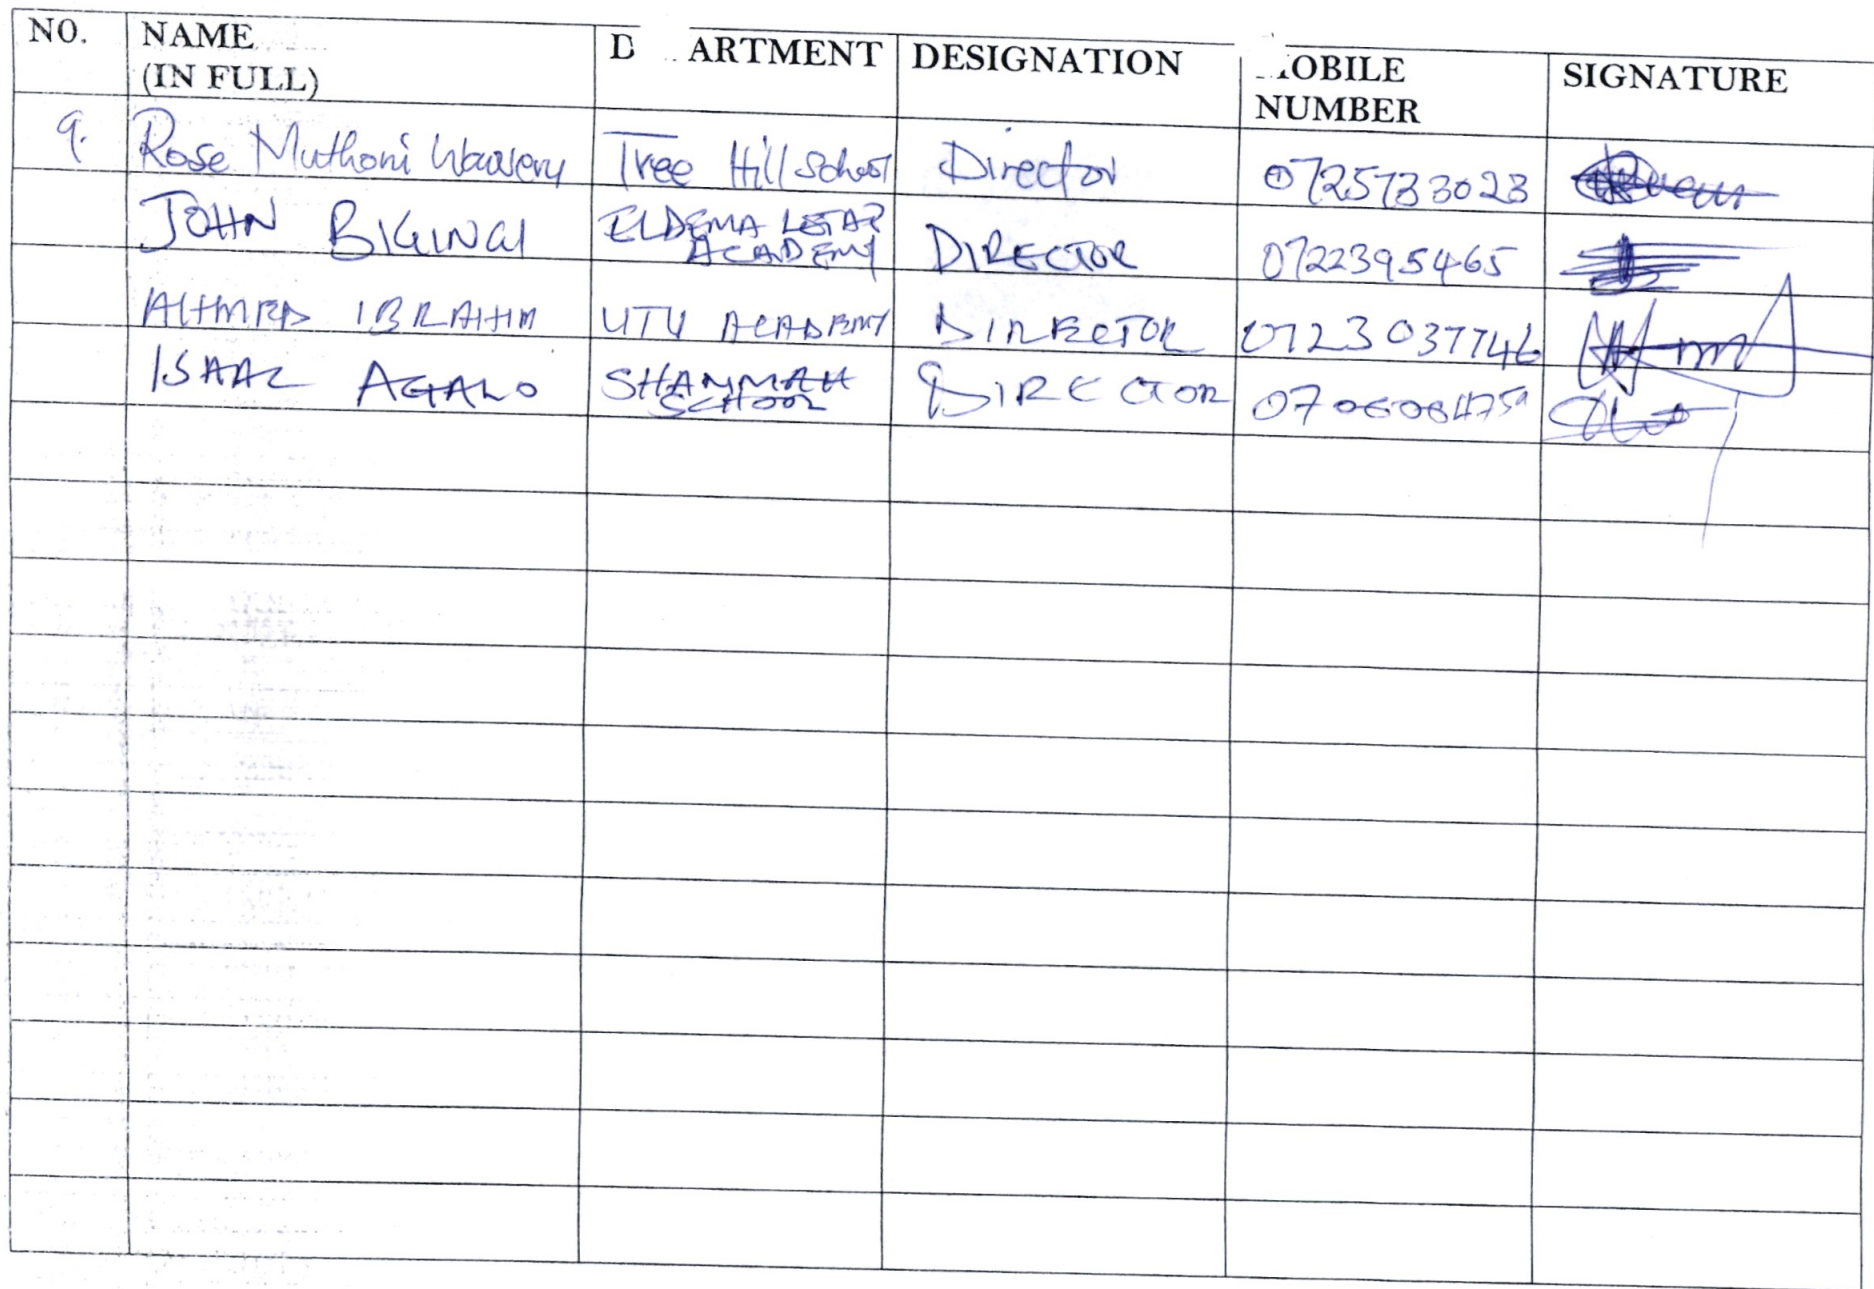 NO. NAME (IN FULL) D ARTMENT DESIGNATION MOBILE NUMBER SIGNATURE
9. Rose Muthoni Tree Hill School Director 0725733023
JOHN BIGINGI ELDEMA ACADEMY DIRECTOR 0722395465
AHMED IBRAHIM UTU ACADEMY DIRECTOR 0723037746
ISAAC AGALO SHAMMAH SCHOOL DIRECTOR